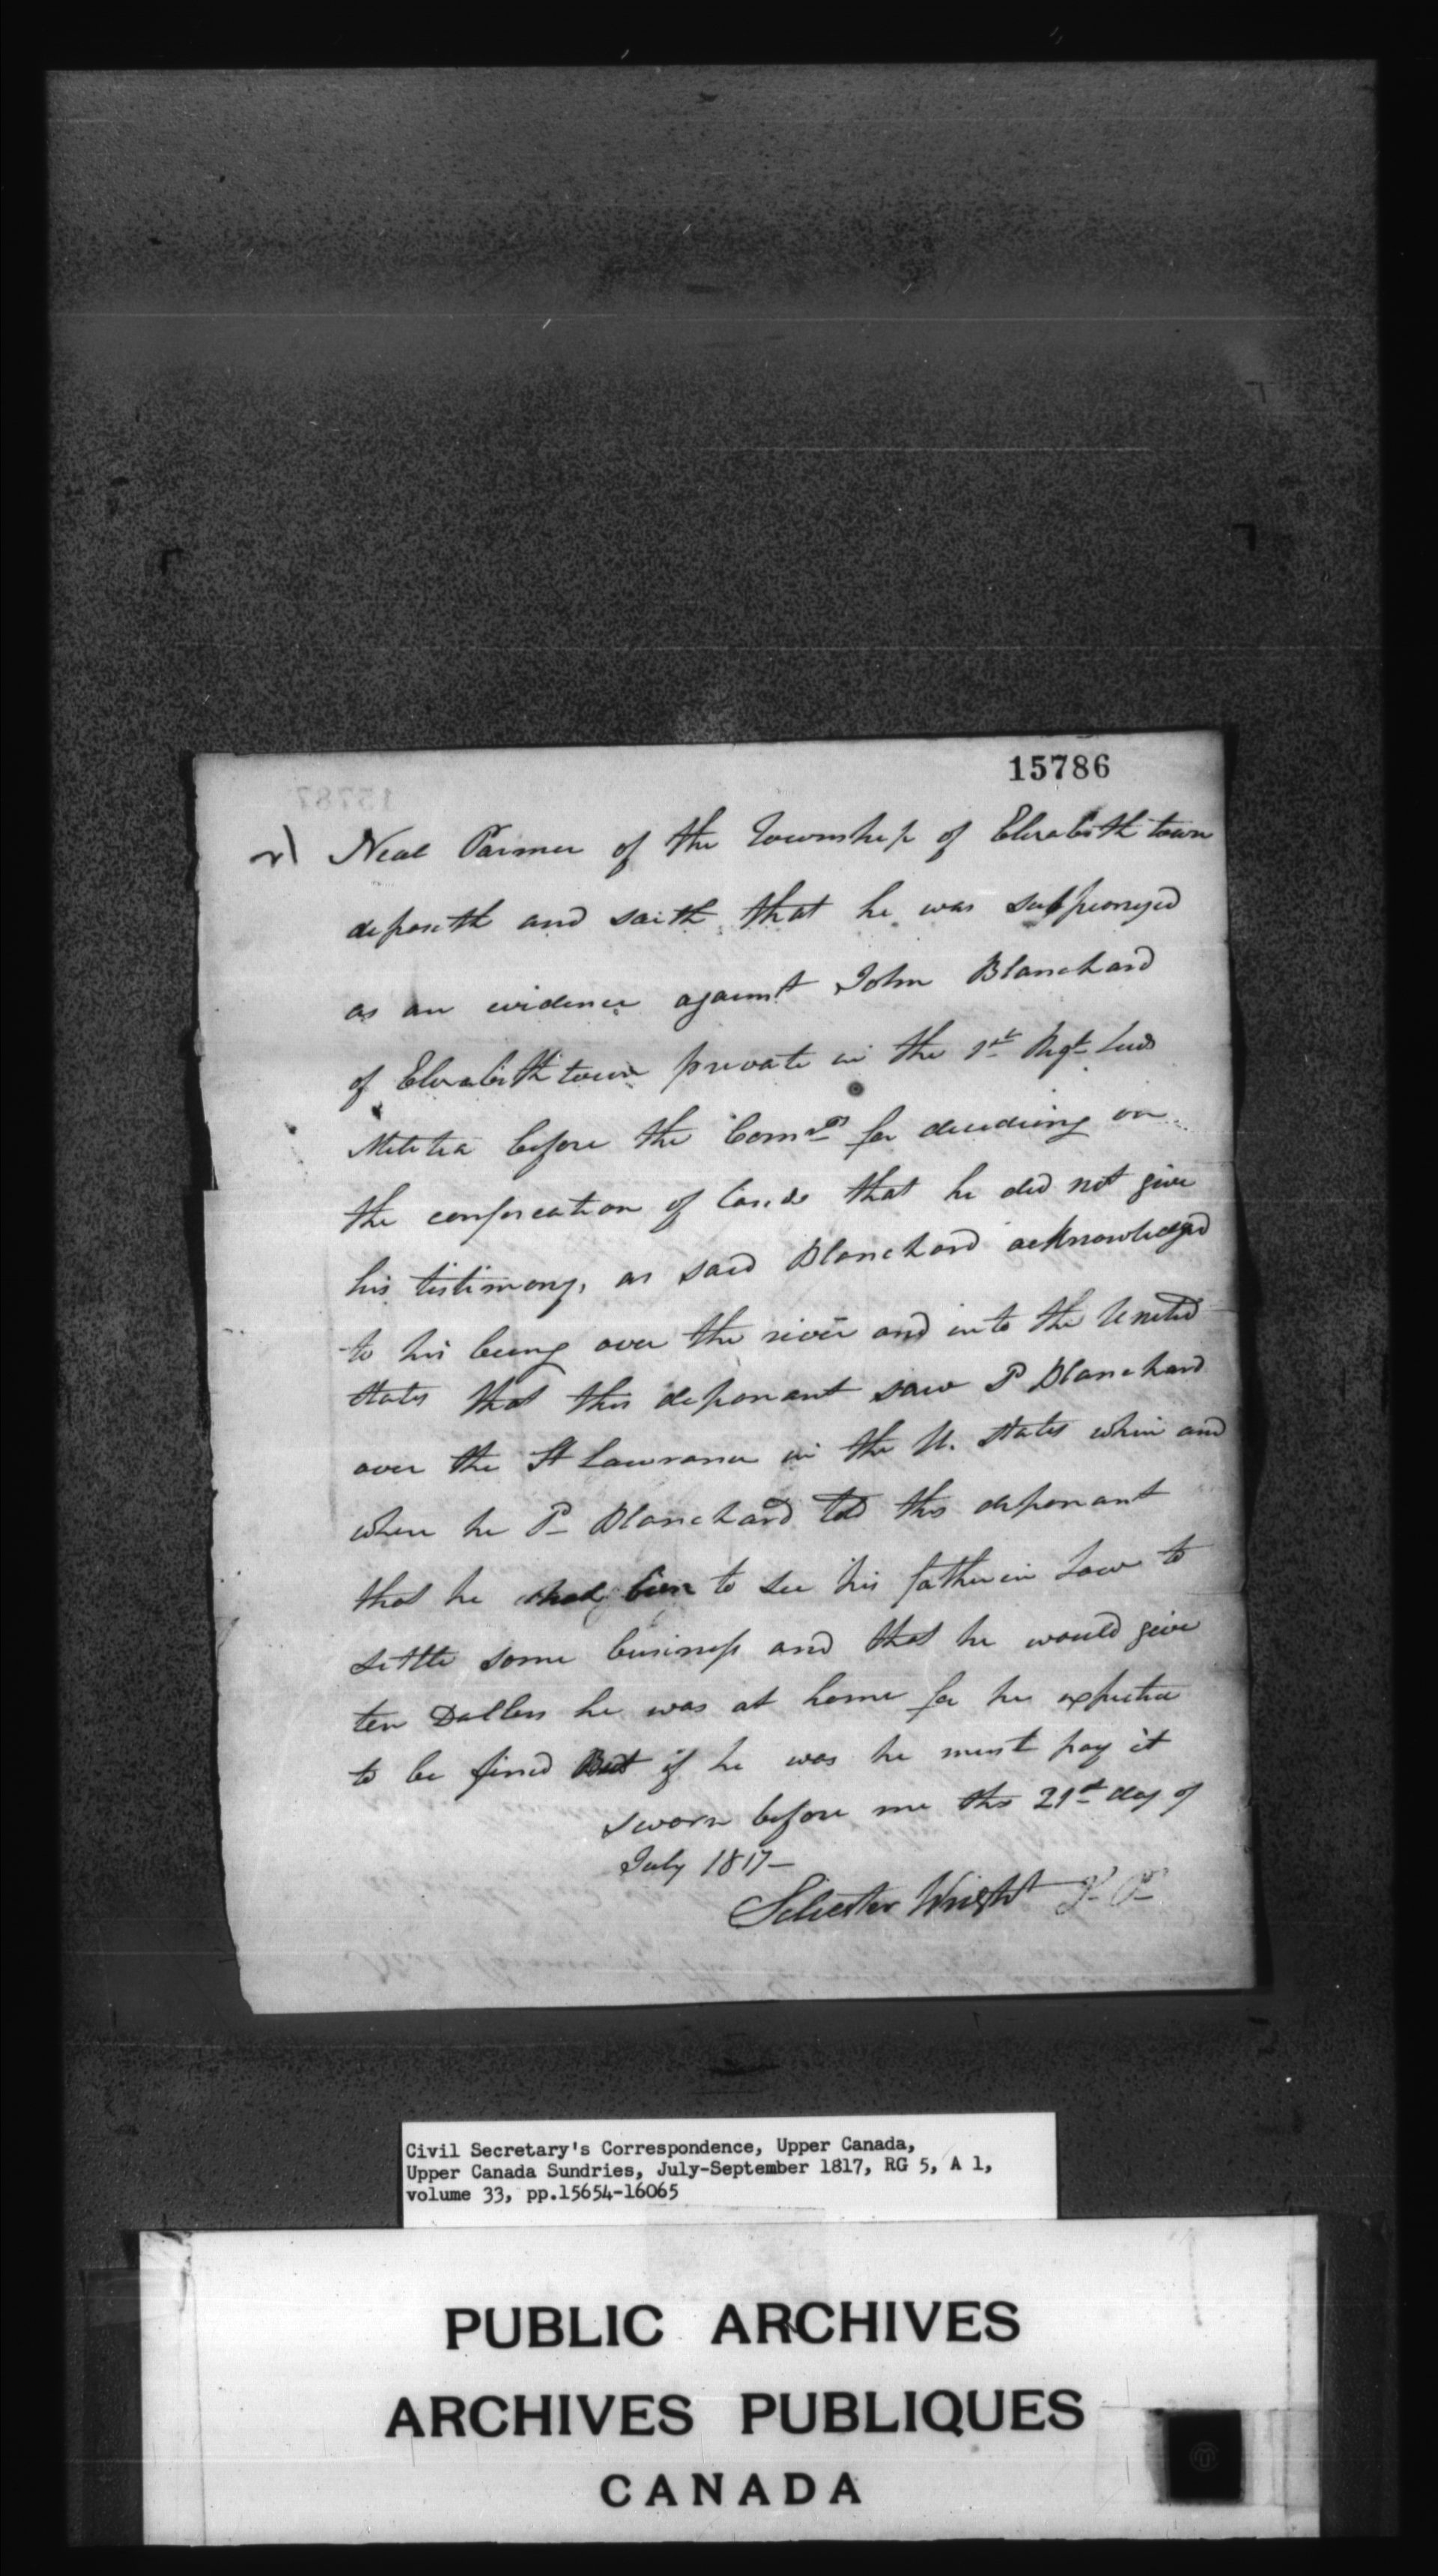 15786
Neal Parmer of the Township of Elizabith town
deposeth and saith that he was subpeonyed
as an evidence against John Blanchard
of Elizabith town private in the 1st Regt Leeds
Militia before the Comrs for deciding on
the confiscation of Lands that he did not give
his tistimony, as said Blanchard acknowledged
to his being over the river and into the United
States that this deponant saw Sd Blanchard
over the St Lawrance in the U. States when and
where he Sd Blanchard told this deponant
that he had bien to see his father in Law to
settle some business and that he would give
ten Dollers he was at home for he expected
to be fined But if he was he must pay it
sworn before me this 21st day of
July 1817 —
Selvester Wright J. P.
Civil Secretary's Correspondence, Upper Canada,
Upper Canada Sundries, July-September 1817, RG 5, A 1,
volume 33, pp.15654-16065
PUBLIC ARCHIVES
ARCHIVES PUBLIQUES
CANADA